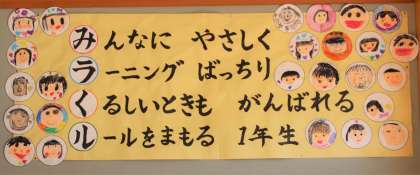 みんなに やさしく
ラーニング ばっちり
くるしいときも がんばれる
ルールをまもる 1年生